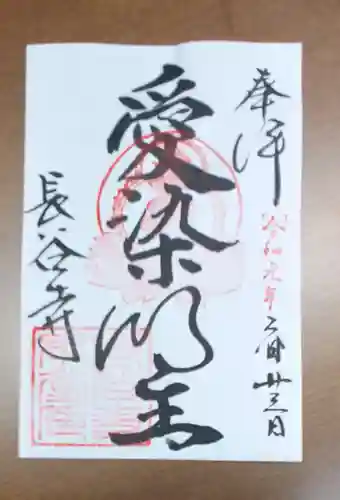 奉拝
令和元年 月廿三日
愛染明王
長谷寺